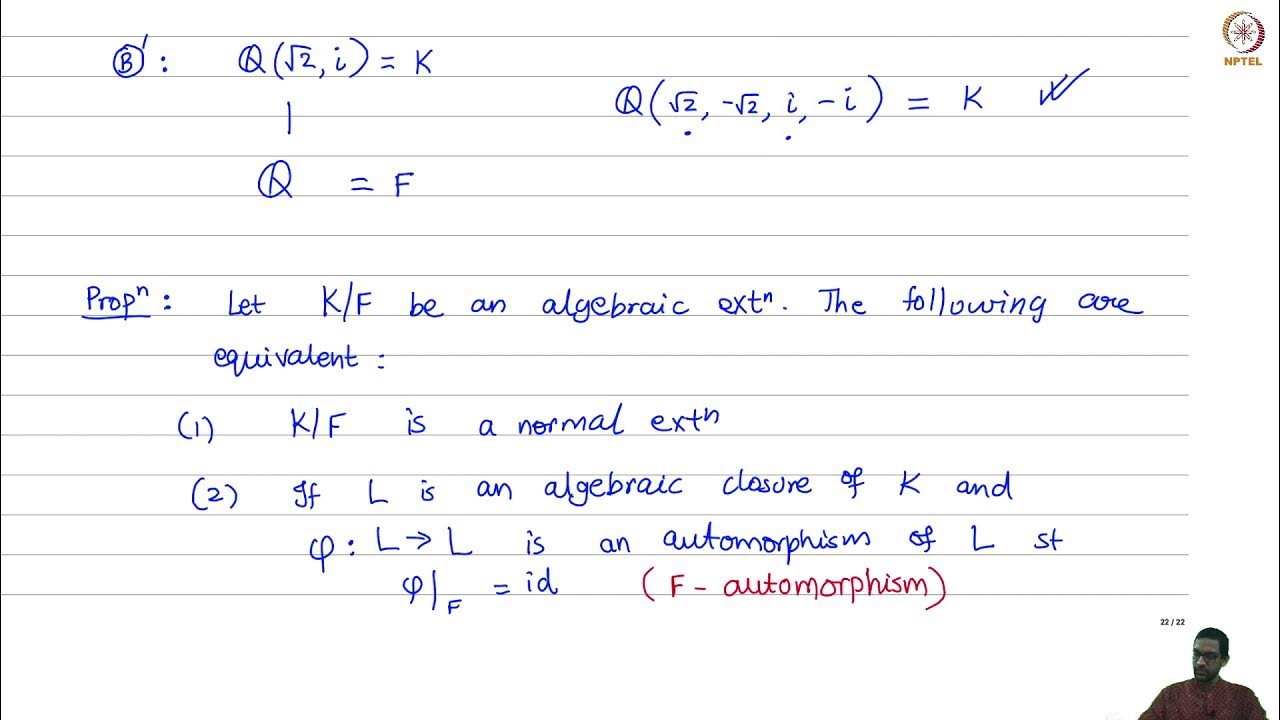 B' : ℚ(√2, i) = K
ℚ(√2, -√2, i, -i) = K
|
ℚ = F
Propⁿ : Let K/F be an algebraic extⁿ. The following are
equivalent :
(1) K/F is a normal extⁿ
(2) If L is an algebraic closure of K and
φ : L → L is an automorphism of L st
φ|_F = id (F - automorphism)
22 / 22
NPTEL